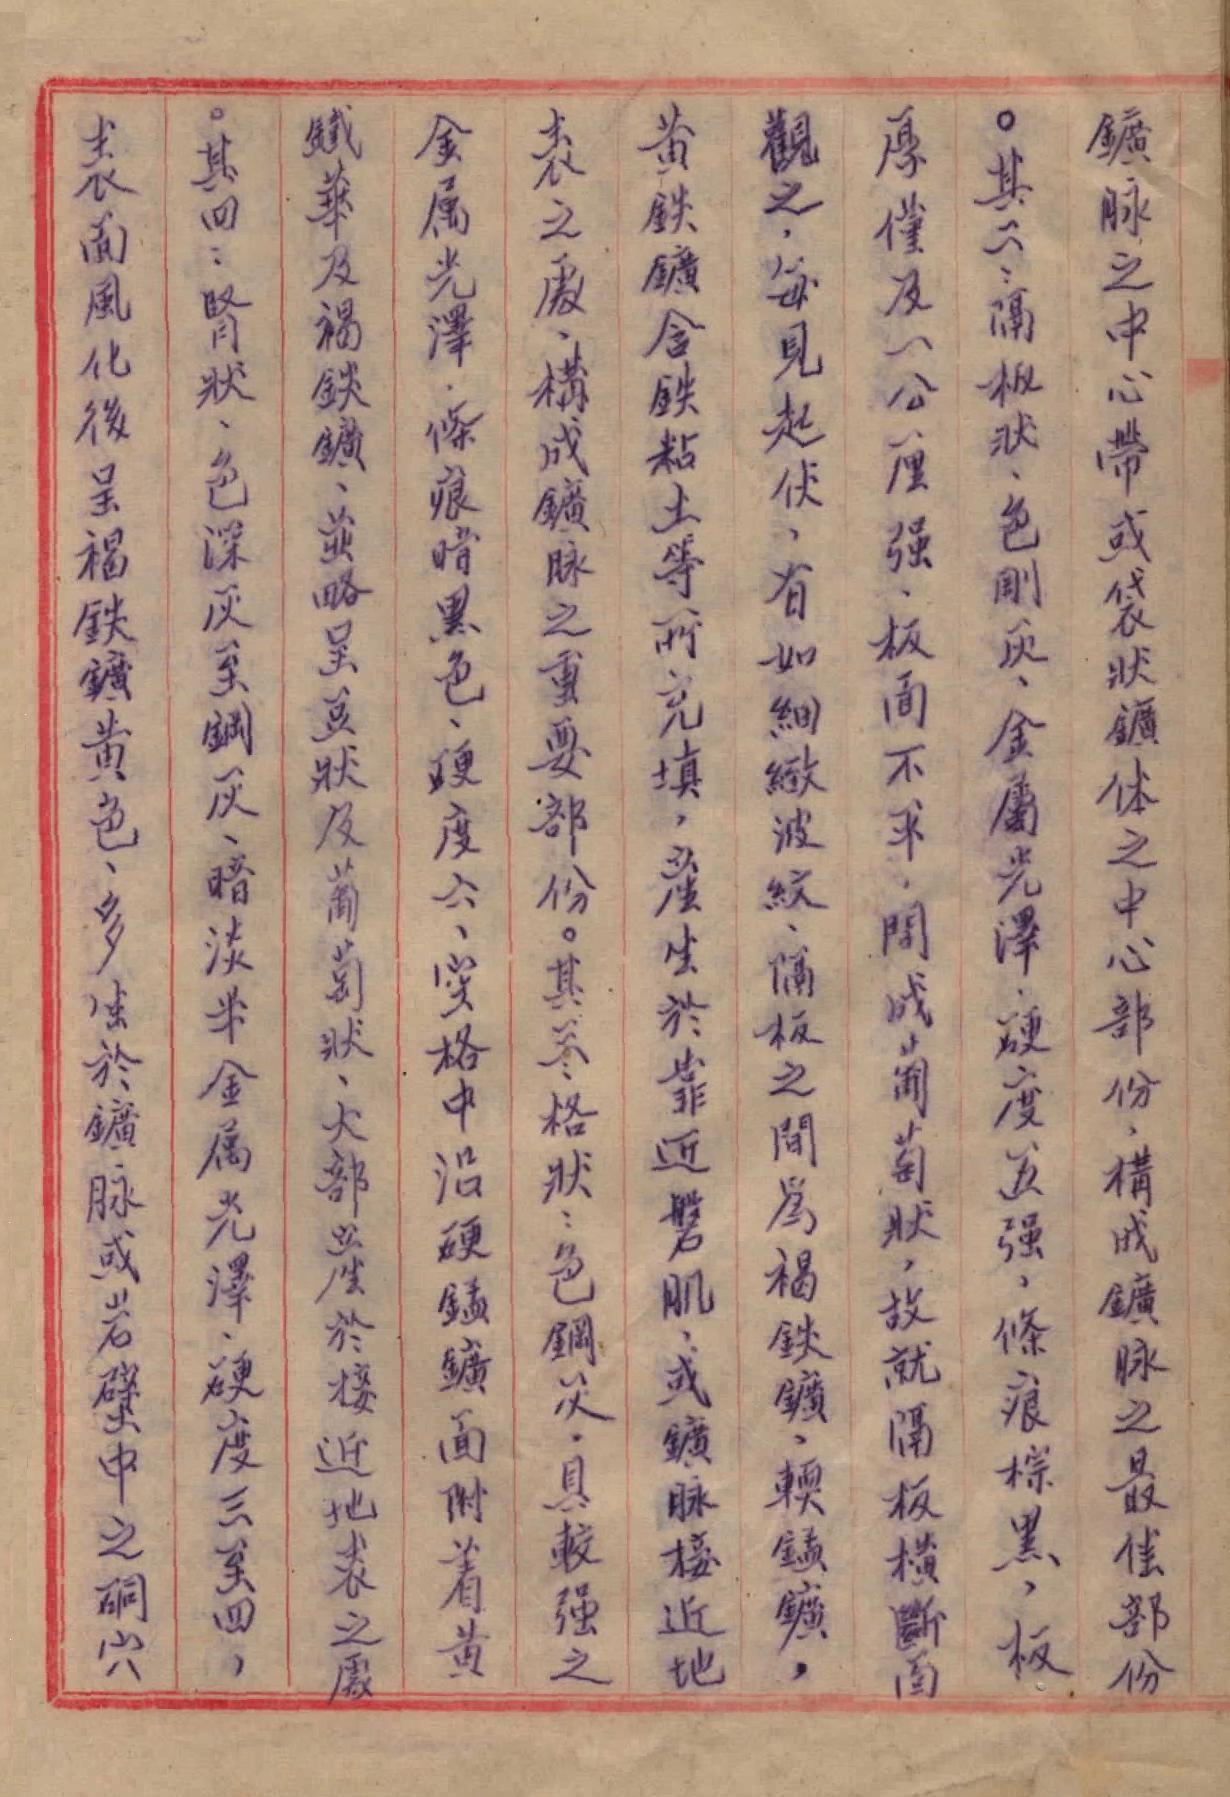 鑛脉之中心帶或袋狀鑛体之中心部份、構成鑛脉之最佳部份
。其二：隔板狀、色剛灰、金屬光澤、硬度五强，條痕棕黑，板
厚僅及一公厘强、板面不平、間成葡萄狀，故就隔板橫斷面
觀之，每見起伏，有如細緻波紋、隔板之間爲褐鉄鑛、軟錳鑛，
黃鉄鑛含鉄粘土等所充填，產生於靠近磐肌、或鑛脉接近地
表之處、構成鑛脉之重要部份。其三：格狀：色鋼灰、具較强之
金属光澤．條痕暗黑色、硬度六、空格中沿硬錳鑛面附着黃
鐵華及褐鉄鑛、並略呈豆狀及葡萄狀、大部產於接近地表之處
。其四：腎狀、色深灰至鋼灰、暗淡半金属光澤、硬度三至四，
表面風化後呈褐鉄鑛黃色、多生於鑛脉或岩礫中之硐穴